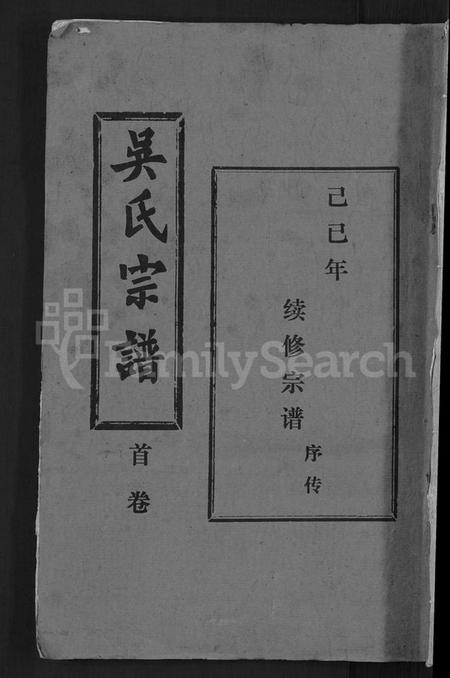 己巳年
续修宗谱
序传
吴氏宗譜
首卷
FamilySearch